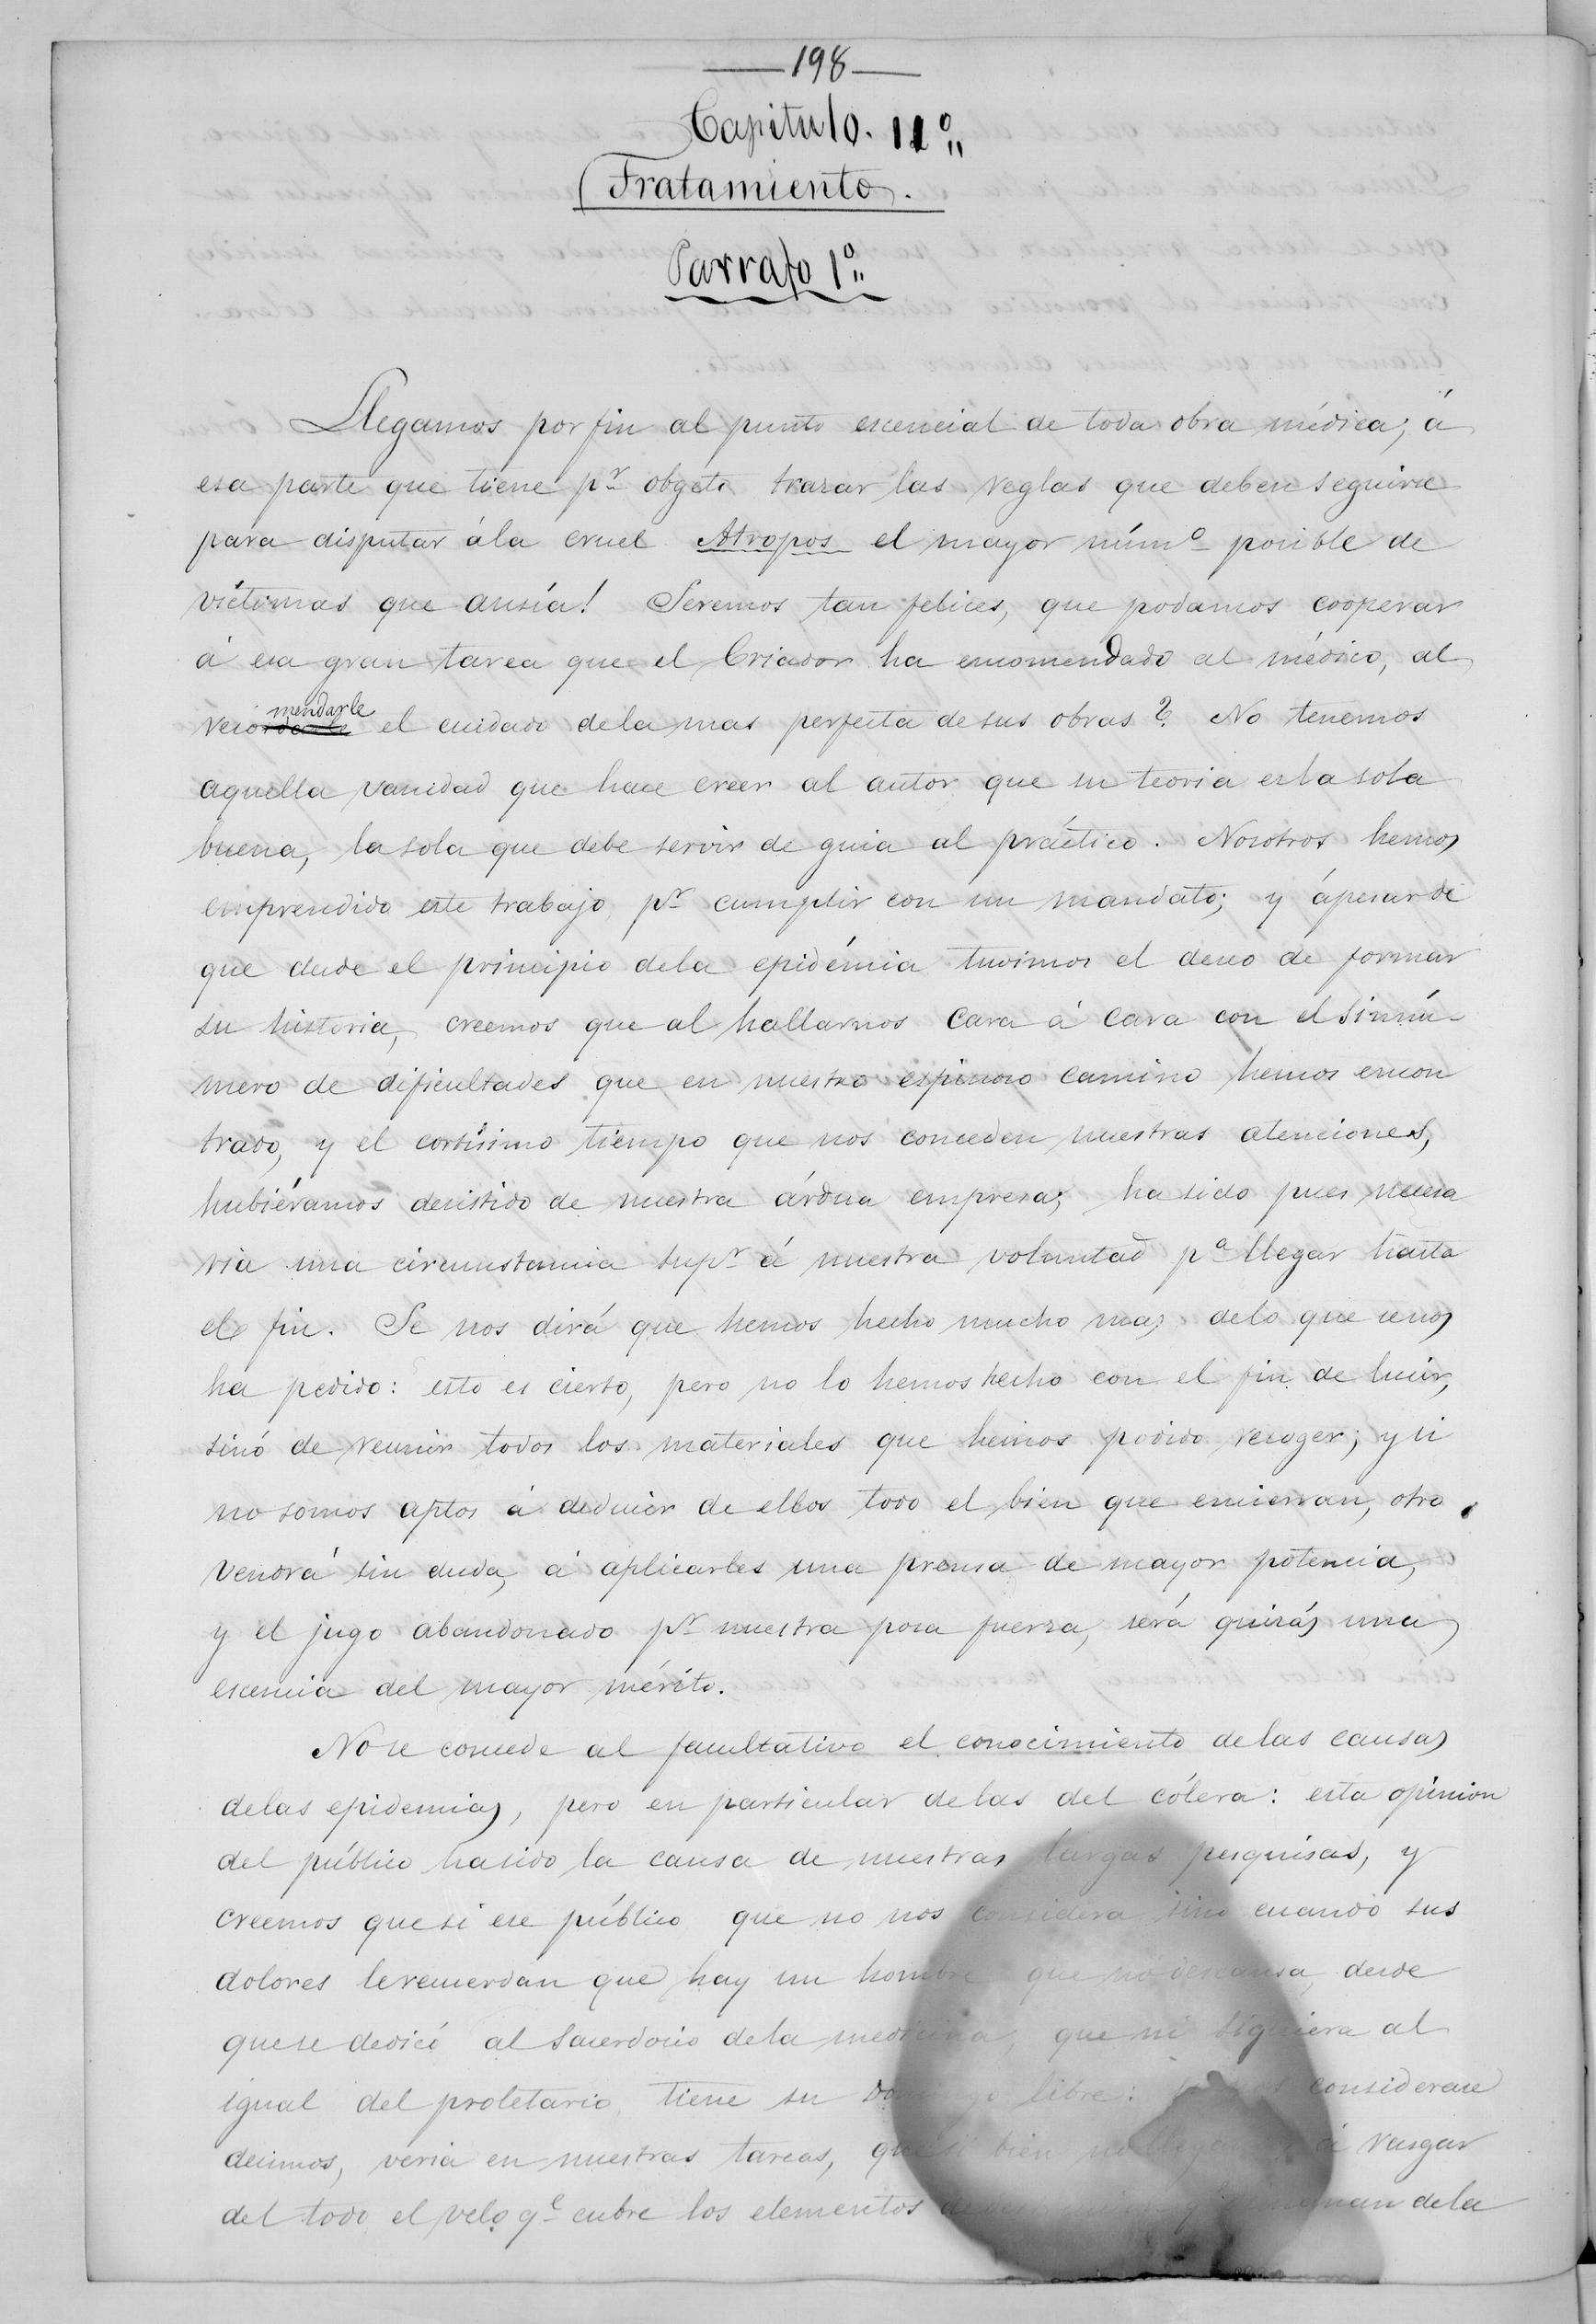 198
Capitulo. 11º
Tratamiento.
Parrafo 1º
Llegamos por fin al punto esencial de toda obra médica; á
esa parte que tiene pr obgeto trazar las reglas que deben seguirse
para disputar á la cruel Atropos el mayor númo posible de
víctimas que ansía! Seremos tan felices, que podamos cooperar
á esa gran tarea que el Criador ha encomendado al médico, al
recomendarle el cuidado dela mas perfecta de sus obras? No tenemos
aquella vanidad que hace creer al autor que su teoria es la sola
buena, la sola que debe servir de guia al práctico. Nosotros hemos
emprendido este trabajo pr cumplir con un mandato; y ápesar de
que desde el principio dela epidémia tuvimos el deseo de formar
su historia, creemos que al hallarnos cara á cara con el sinnú-
mero de dificultades que en nuestro espinoso camino hemos encon
trado, y el cortísimo tiempo que nos conceden nuestras atenciones,
hubiéramos desistido de nuestra árdua empresa; ha sido pues necesa
ria una circunstancia supr á nuestra voluntad pa llegar hasta
el fin. Se nos dirá que hemos hecho mucho mas delo que se nos
ha pedido: esto es cierto, pero no lo hemos hecho con el fin de lucir,
sinó de reunir todos los materiales que hemos podido recoger; y si
no somos aptos á deducir de ellos todo el bien que encierran, otro
vendrá sin duda, á aplicarles una prensa de mayor potencia,
y el jugo abandonado pr nuestra poca fuerza, será quizás una
esencia del mayor mérito.
No se concede al facultativo el conocimiento de las causas
delas epidemias, pero en particular delas del cólera: esta opinion
del público ha sido la causa de nuestras largas pesquisas, y
creemos que si ese público que no nos considera sino cuando sus
dolores le recuerdan que hay un hombre que no descansa, desde
que se dedicó al sacerdocio dela medicina, que ni siquiera al
igual del proletario tiene su domingo libre: considerase
decimos, veria en nuestras tareas, que si bien no llegamos á rasgar
del todo el velo qe cubre los elementos dela